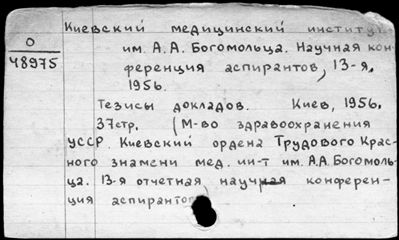 Киевский медицинский институт
О
48975
им. А.А. Богомольца. Научная кон-
ференция аспирантов, 13-я.
1956.
Тезисы докладов. Киев, 1956.
37стр. (М-во здравоохранения
УССР. Киевский ордена Трудового Крас-
ного знамени мед. ин-т им. А.А. Богомоль-
ца. 13-я отчетная научная конферен-
ция аспирантов